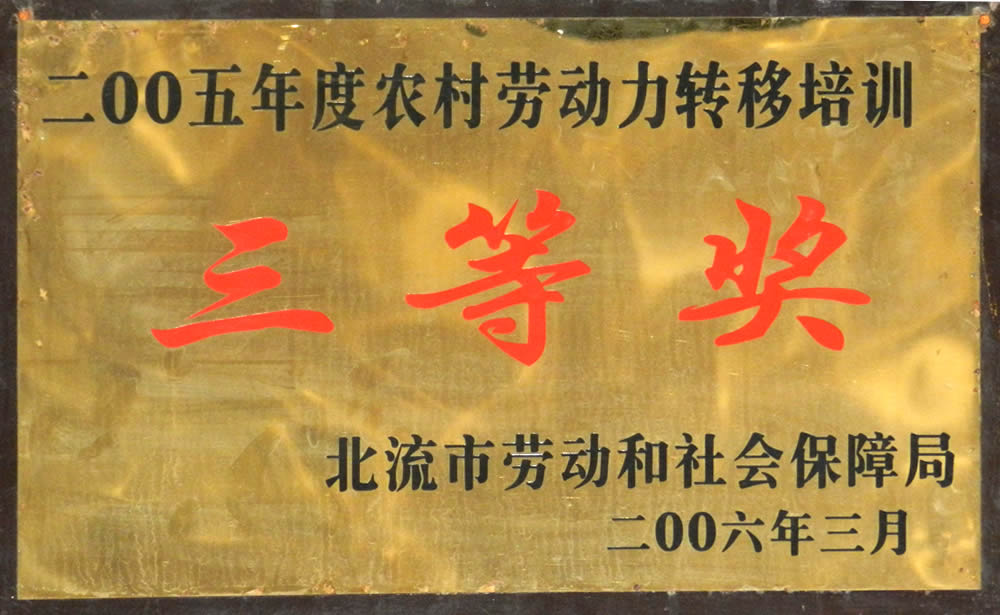 二00五年度农村劳动力转移培训
三等奖
北流市劳动和社会保障局
二00六年三月